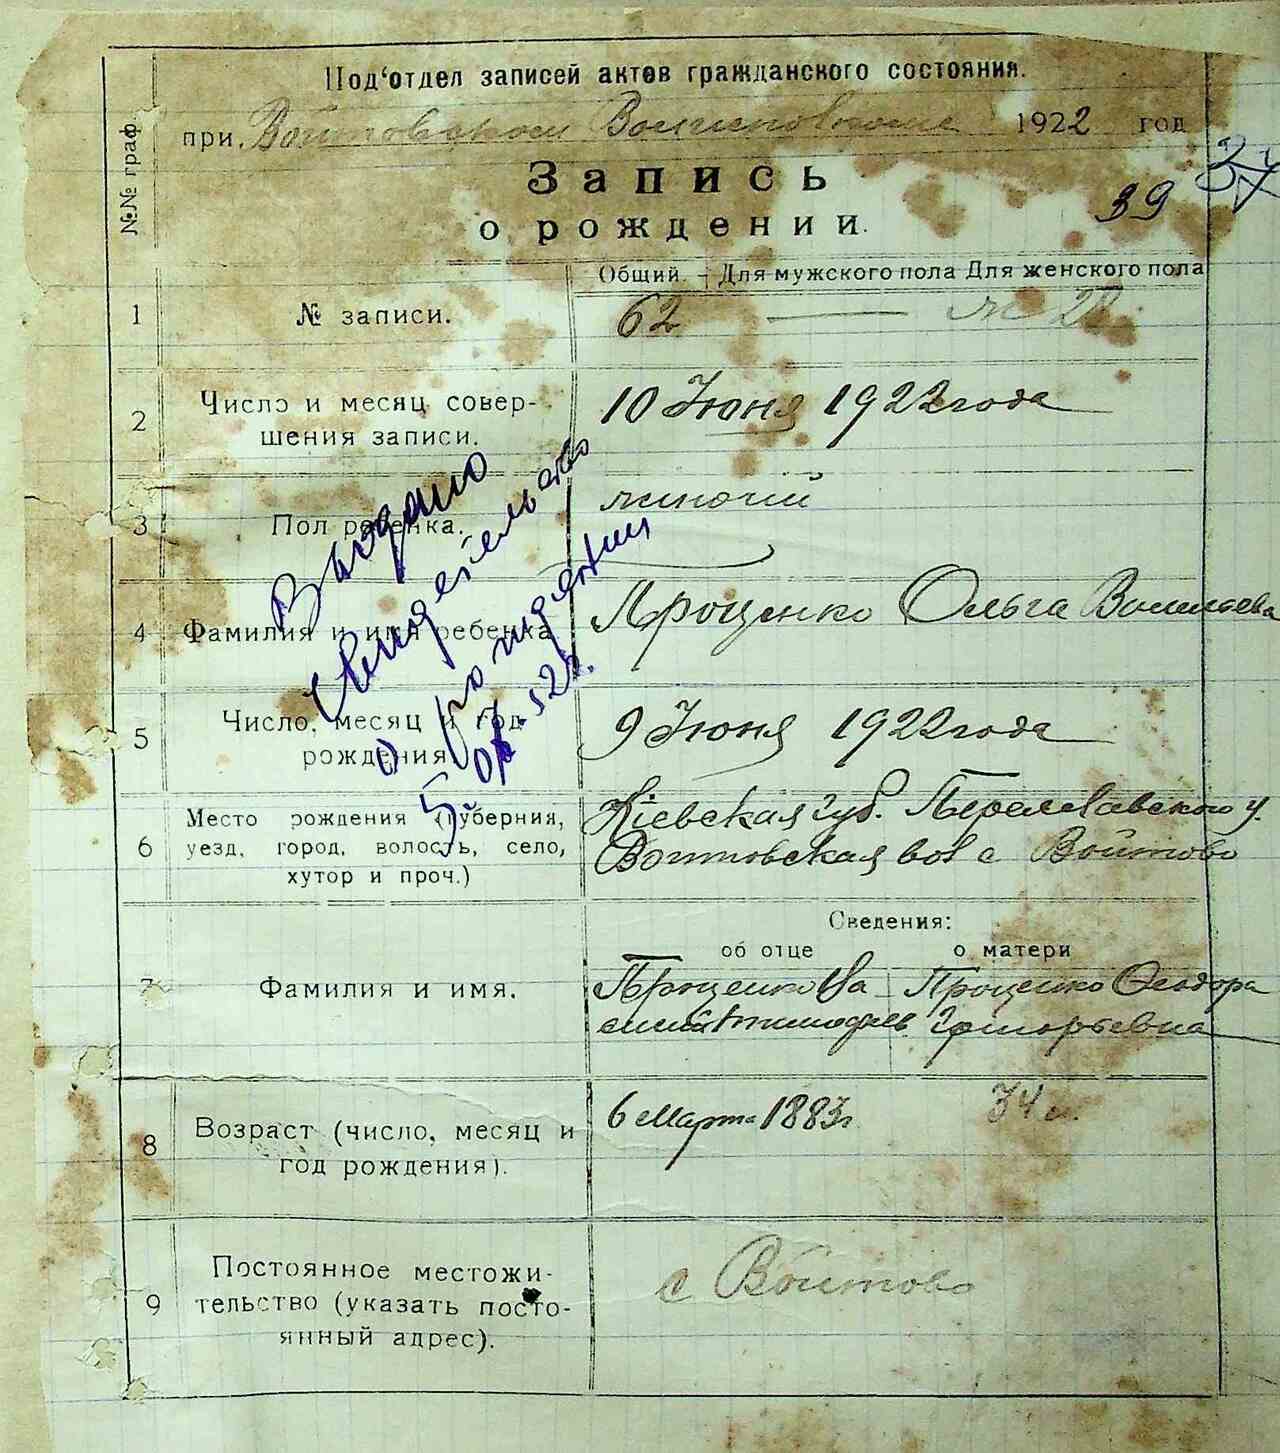 Под‘отдел записей актов гражданского состояния.
при Войтовском Волисполкоме 1922 год
№№ граф.
Запись
о рождении.
39
37
Общий. Для мужского пола Для женского пола
1 № записи. 62 —
2 Число и месяц совер-
шения записи.
10 Июня 1922 года
3 Пол ребенка.
жиночий
4 Фамилия и имя ребенка
Проценко Ольга Васильева
5 Число, месяц и год
рождения
9 Июня 1922 года
6 Место рождения (губерния,
уезд, город, волость, село,
хутор и проч.)
Кіевская губ. Переяславского у.
Войтовская вол с Войтово
Выдано
свидетельство
о рождении
Сведения:
об отце о матери
7 Фамилия и имя.
Проценко Ва Проценко Феодора
силий Тимофеев Григорьевна
8 Возраст (число, месяц и
год рождения).
6 Марта 1883 г 34
9 Постоянное местожи-
тельство (указать посто-
янный адрес).
с Войтово